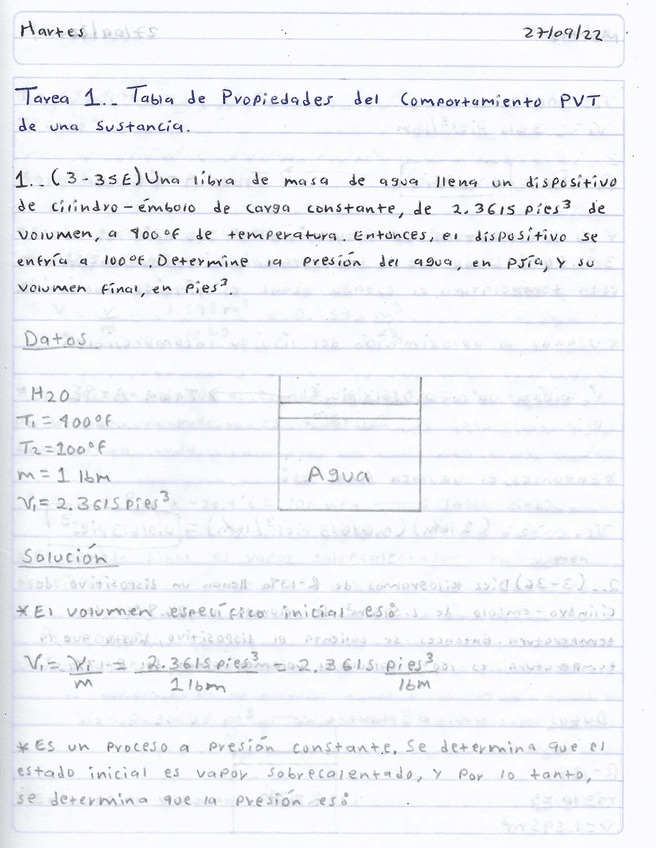 Martes 27/09/22
Tarea 1.. Tabla de Propiedades del Comportamiento PVT
de una sustancia.
1.. (3-35E) Una libra de masa de agua llena un dispositivo
de cilindro-émbolo de carga constante, de 2.3615 pies³ de
volumen, a 400°F de temperatura. Entonces, el dispositivo se
enfría a 100°F. Determine la presión del agua, en psía, y su
volumen final, en pies³.
Datos
H2O
T₁ = 400°F
T₂ = 100°F
m = 1 lbm
V₁ = 2.3615 pies³
Agua
Solución
* El volumen específico inicial es:
V₁ = V₁/m = 2.3615 pies³/1 lbm = 2.3615 pies³/lbm
* Es un proceso a presión constante. Se determina que el
estado inicial es vapor sobrecalentado, y por lo tanto,
se determina que la presión es: